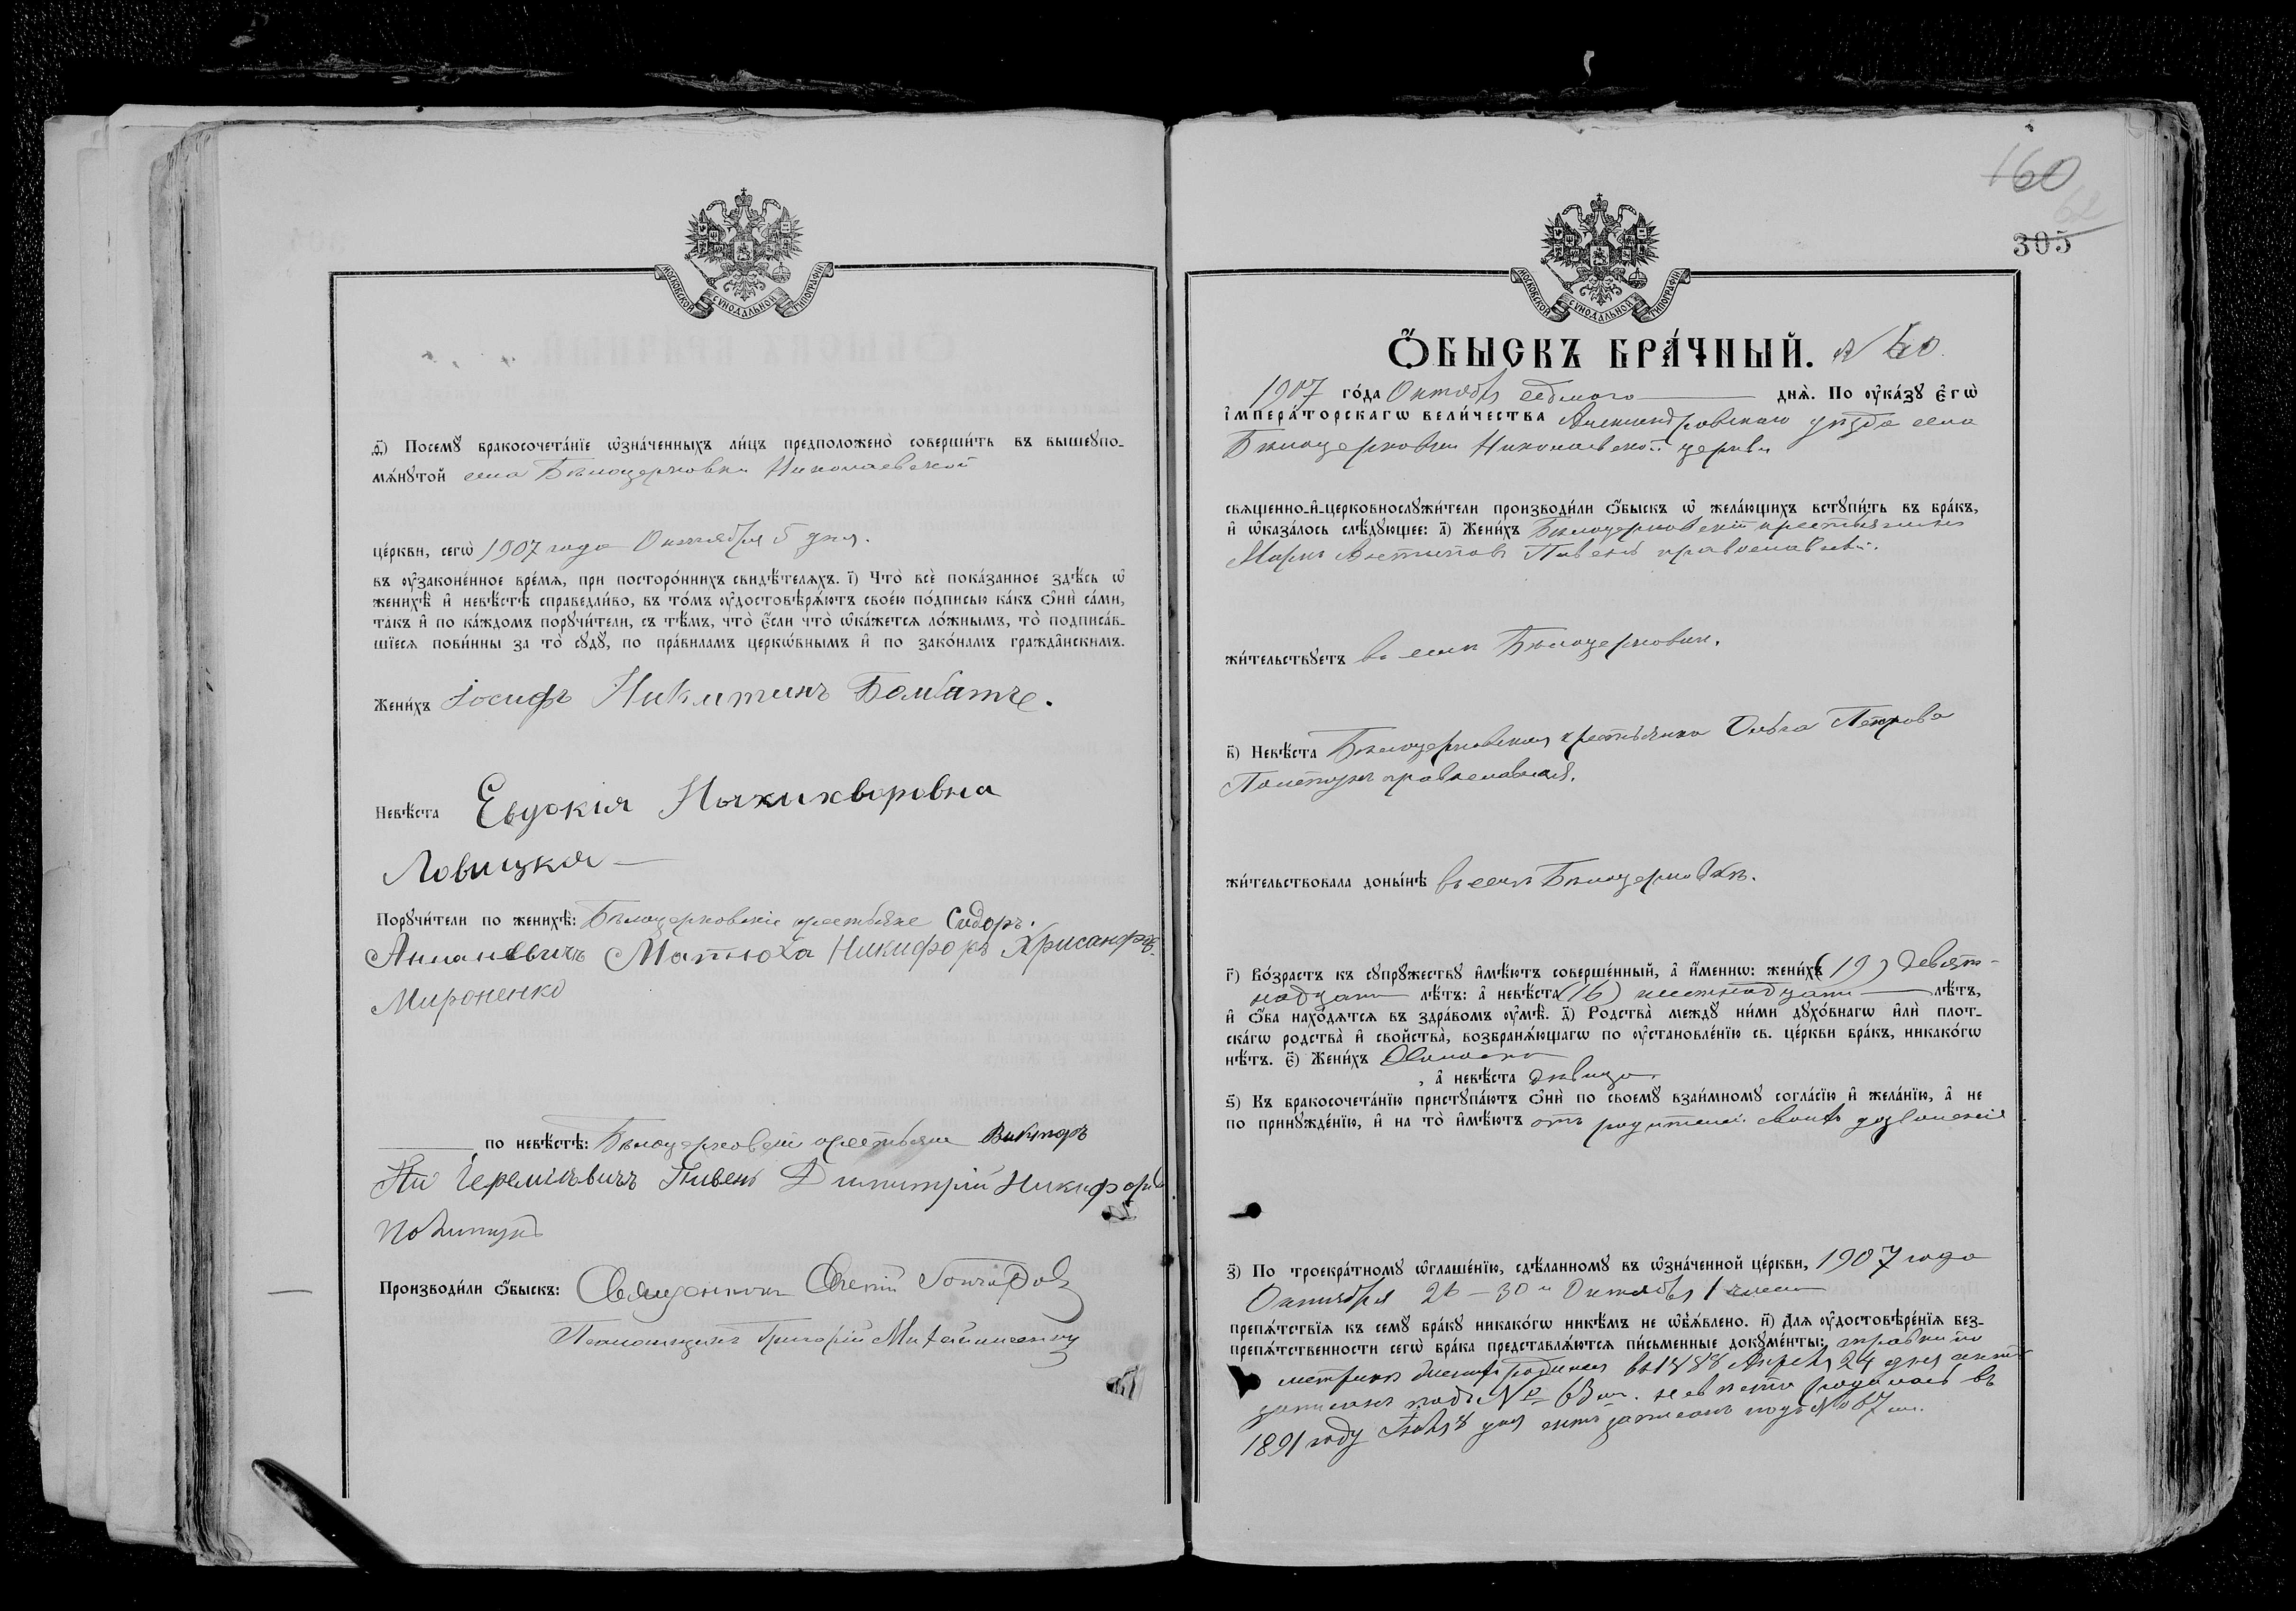 МОСКОВСКОЙ СѴНОДАЛЬНОЙ ТИПОГРАФІИ
ѳ҃) Посемꙋ̀ бракосочета́нїе ѡ҆зна́ченныхъ ли́цъ предположено̀ соверши́ть въ вышеꙋпо-
мѧ́нꙋтой села Бѣлоцерковки Николаевской
це́ркви, сегѡ̀ 1907 года Октября 5 дня.
въ ᲂу҆зако́ненное вре́мѧ, при посторо́ннихъ свидѣ́телѧхъ. і҃) Что̀ всѐ пока́занное здѣ́сь ѡ҆
женихѣ̀ и҆ невѣ́стѣ справедли́во, въ то́мъ ᲂу҆достовѣрѧ́ютъ свое́ю по́дписью ка́къ ѻ҆нѝ са́ми,
та́къ и҆ по ка́ждомъ порꙋчи́тели, съ тѣ́мъ, что̀ є҆́сли что̀ ѡ҆ка́жетсѧ ло́жнымъ, то̀ подписа́в-
шїесѧ пови́нны за то̀ сꙋдꙋ̀, по пра́виламъ церко́внымъ и҆ по зако́намъ гражда́нскимъ.
Жени́хъ Іосифъ Никитинъ
Невѣ́ста Евдокія Ныкихворовна
Ловицкая
Порꙋчи́тели по женихѣ̀: Бѣлоцерковскіе крестьяне Сидоръ
Матюха Никифоръ Хрисанфов.
Мироненко
по невѣ́стѣ: Бѣлоцерковскіе крестьяне Викторъ
Іереміевичъ Пивень Димитрій Никифоровъ
Производи́ли ѻ҆́быскъ: Священникъ
Псаломщикъ Григорій
160
62
305
МОСКОВСКОЙ СѴНОДАЛЬНОЙ ТИПОГРАФІИ
Ѻ҆́БЫСКЪ БРА́ЧНЫЙ. № 60
1907 го́да Октября седьмого днѧ̀. По ᲂу҆ка́зꙋ є҆гѡ̀
и҆мпера́торскагѡ вели́чества Александровскаго уѣзда села
Бѣлоцерковки Николаевской церкви
свѧще́нно-и҆-церковнослꙋжи́тели производи́ли ѻ҆́быскъ ѡ҆ жела́ющихъ встꙋпи́ть въ бра́къ,
и҆ ѡ҆каза́лось слѣ́дꙋющее: а҃) Жени́хъ Бѣлоцерковскій крестьянинъ
Маркъ Пивень православный.
жи́тельствꙋетъ въ селѣ Бѣлоцерковкѣ.
в҃) Невѣ́ста Бѣлоцерковская крестьянка Ольга Петрова
православная.
жи́тельствовала доны́нѣ въ селѣ Бѣлоцерковкѣ.
г҃) Во́зрастъ къ сꙋпрꙋ́жествꙋ и҆мѣ́ютъ соверше́нный, а҆ и҆́менно: жени́хъ (19) девят-
надцати лѣ́тъ: а҆ невѣ́ста (16) шестнадцати лѣ́тъ,
и҆ ѻ҆́ба нахо́дѧтсѧ въ здра́вомъ ᲂу҆мѣ̀. д҃) Родства̀ междꙋ̀ ни́ми дꙋхо́внагѡ и҆лѝ плот-
ска́гѡ родства̀ и҆ сво́йства, возбранѧ́ющагѡ по ᲂу҆становле́нїю св. це́ркви бра́къ, никако́гѡ
нѣ́тъ. є҃) Жени́хъ Холостъ
, а҆ невѣ́ста дѣвица.
ѕ҃) Къ бракосочета́нїю пристꙋпа́ютъ ѻ҆нѝ по своемꙋ̀ взаи́мномꙋ согла́сїю и҆ жела́нїю, а҆ не
по принꙋжде́нїю, и҆ на то̀ и҆мѣ́ютъ отъ родителей своихъ дозволеніе
з҃) По троекра́тномꙋ ѡ҆глаше́нїю, сдѣ́ланномꙋ въ ѡ҆зна́ченной це́ркви, 1907 года
26 – 30 и Октября 1 числа
препѧ́тствїѧ къ семꙋ̀ бра́кꙋ никако́гѡ никѣ́мъ не ѡ҆б̾ѧ́влено. и҃) Длѧ̀ ᲂу҆достовѣ́ренїѧ без-
препѧ́тственности сегѡ̀ бра́ка представлѧ́ютсѧ пи́сьменные докꙋме́нты: справки по
метрикѣ женихъ родился въ 1888 Апрѣля 24 дня актъ
записанъ подъ № 63 невѣста родилась въ
1891 году Іюля 8 дня актъ записанъ подъ № 67